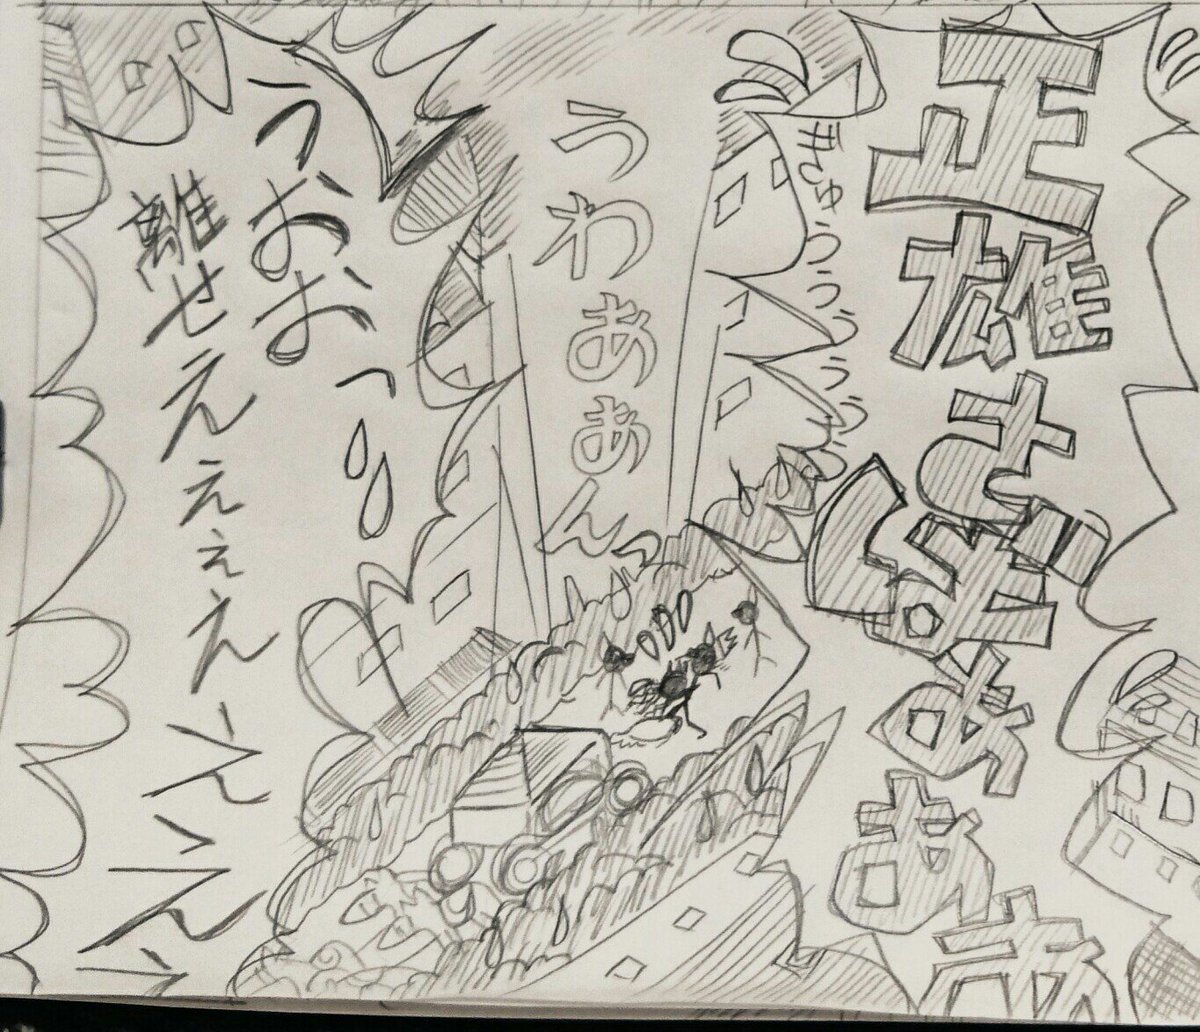 正雄さまぁああ
ぎゅうううううう
うわぁぁんっ
うおおっ
離せえぇぇええええ